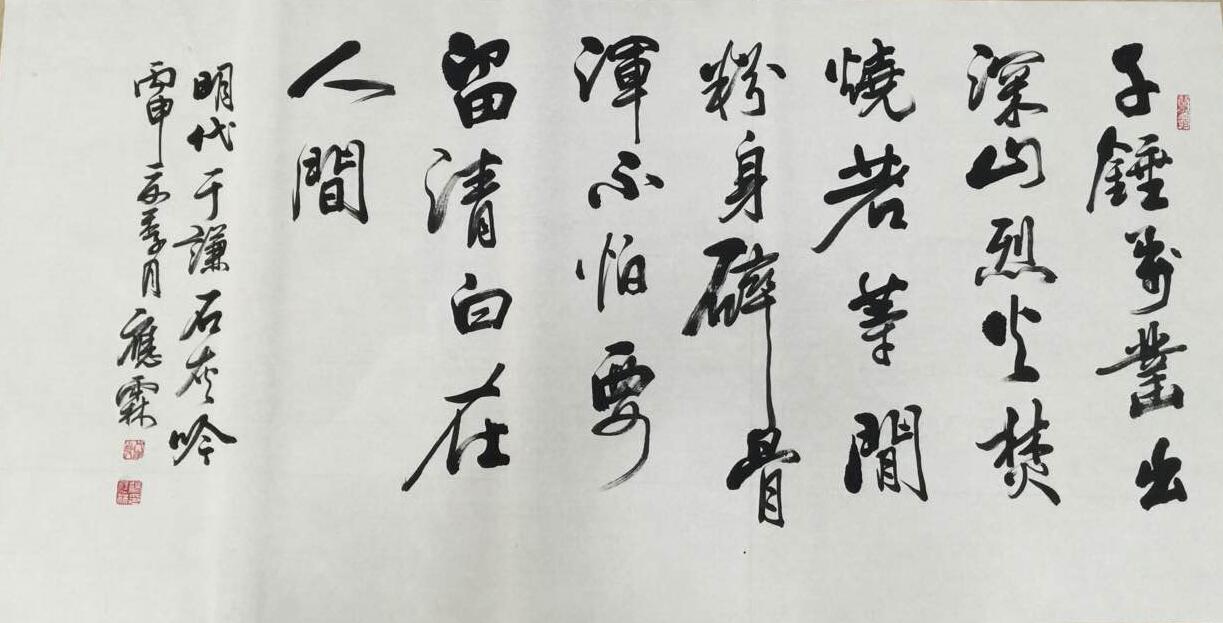 千錘萬鑿出
深山烈火焚
燒若等閒
粉身碎骨
渾不怕要
留清白在
人間
明代于謙石灰吟
丙申季月應霖